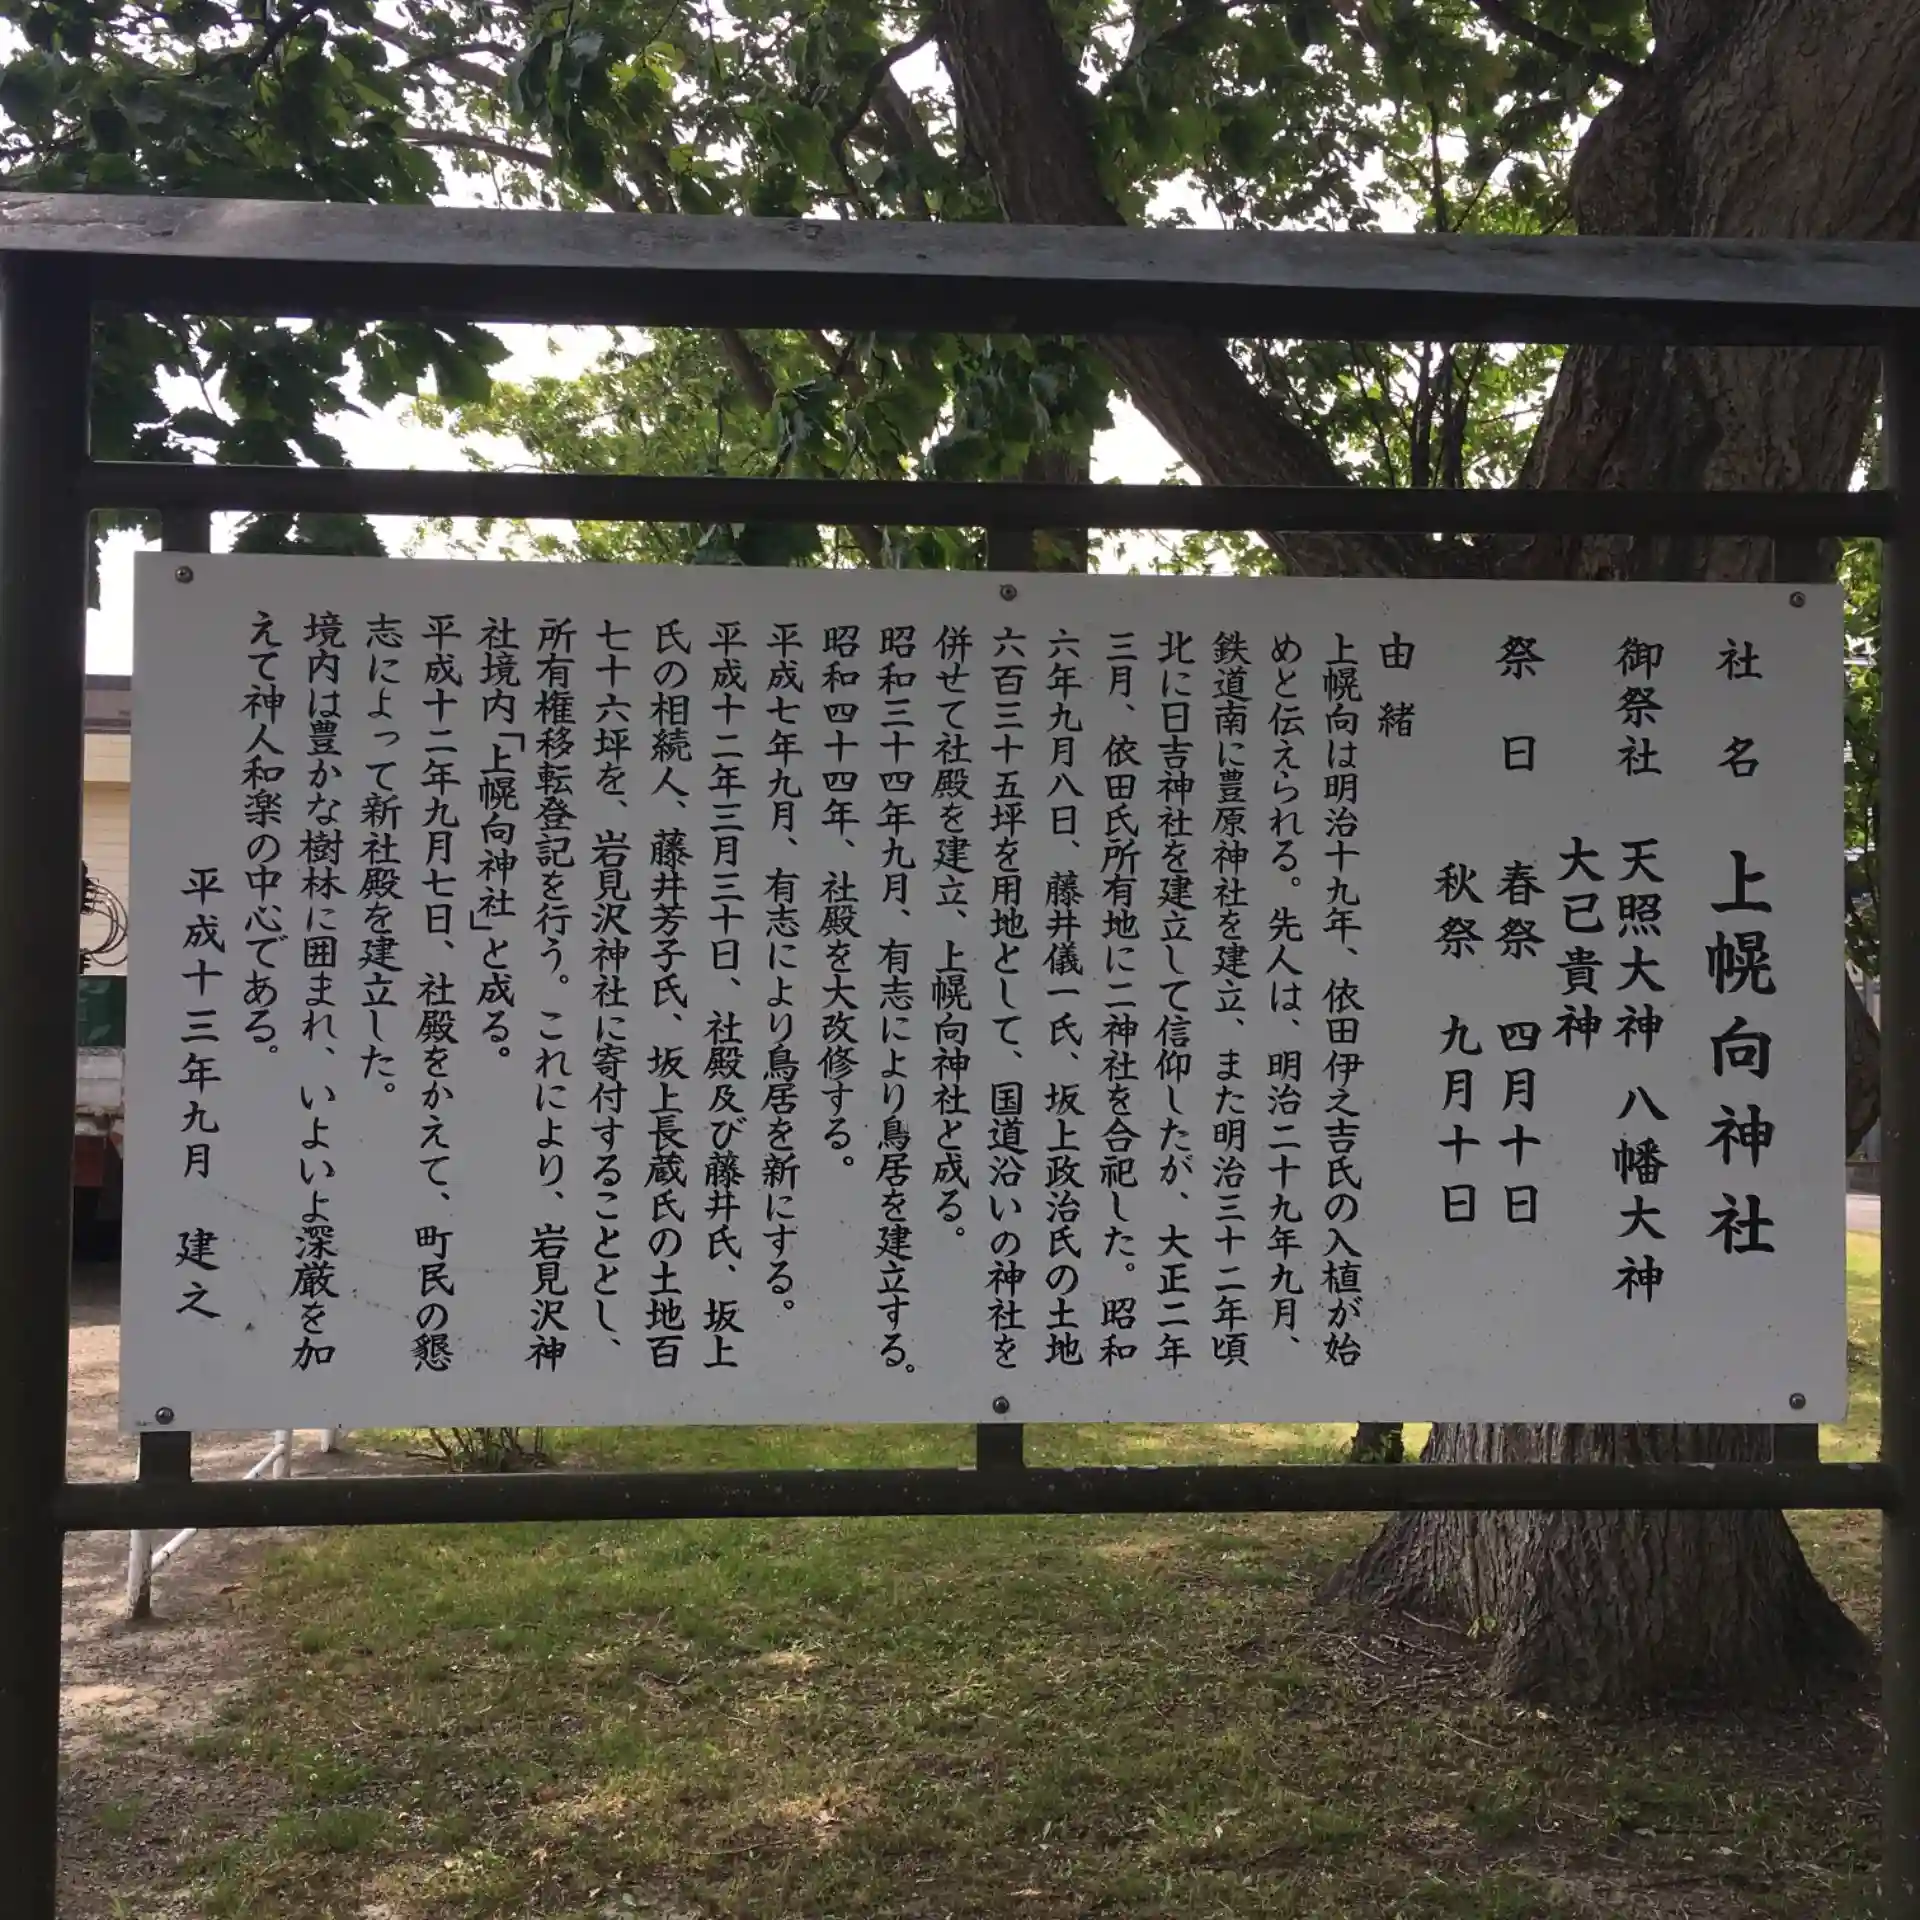 社名 上幌向神社
御祭社 天照大神 八幡大神
大已貴神
祭日 春祭 四月十日
秋祭 九月十日
由緒
上幌向は明治十九年、依田伊之吉氏の入植が始
めと伝えられる。先人は、明治二十九年九月、
鉄道南に豊原神社を建立、また明治三十二年頃
北に日吉神社を建立して信仰したが、大正二年
三月、依田氏所有地に二神社を合祀した。昭和
六年九月八日、藤井儀一氏、坂上政治氏の土地
六百三十五坪を用地として、国道沿いの神社を
併せて社殿を建立、上幌向神社と成る。
昭和三十四年九月、有志により鳥居を建立する。
昭和四十四年、社殿を大改修する。
平成七年九月、有志により鳥居を新にする。
平成十二年三月三十日、社殿及び藤井氏、坂上
氏の相続人、藤井芳子氏、坂上長蔵氏の土地百
七十六坪を、岩見沢神社に寄付することとし、
所有権移転登記を行う。これにより、岩見沢神
社境内「上幌向神社」と成る。
平成十二年九月七日、社殿をかえて、町民の懇
志によって新社殿を建立した。
境内は豊かな樹林に囲まれ、いよいよ深厳を加
えて神人和楽の中心である。
平成十三年九月 建之